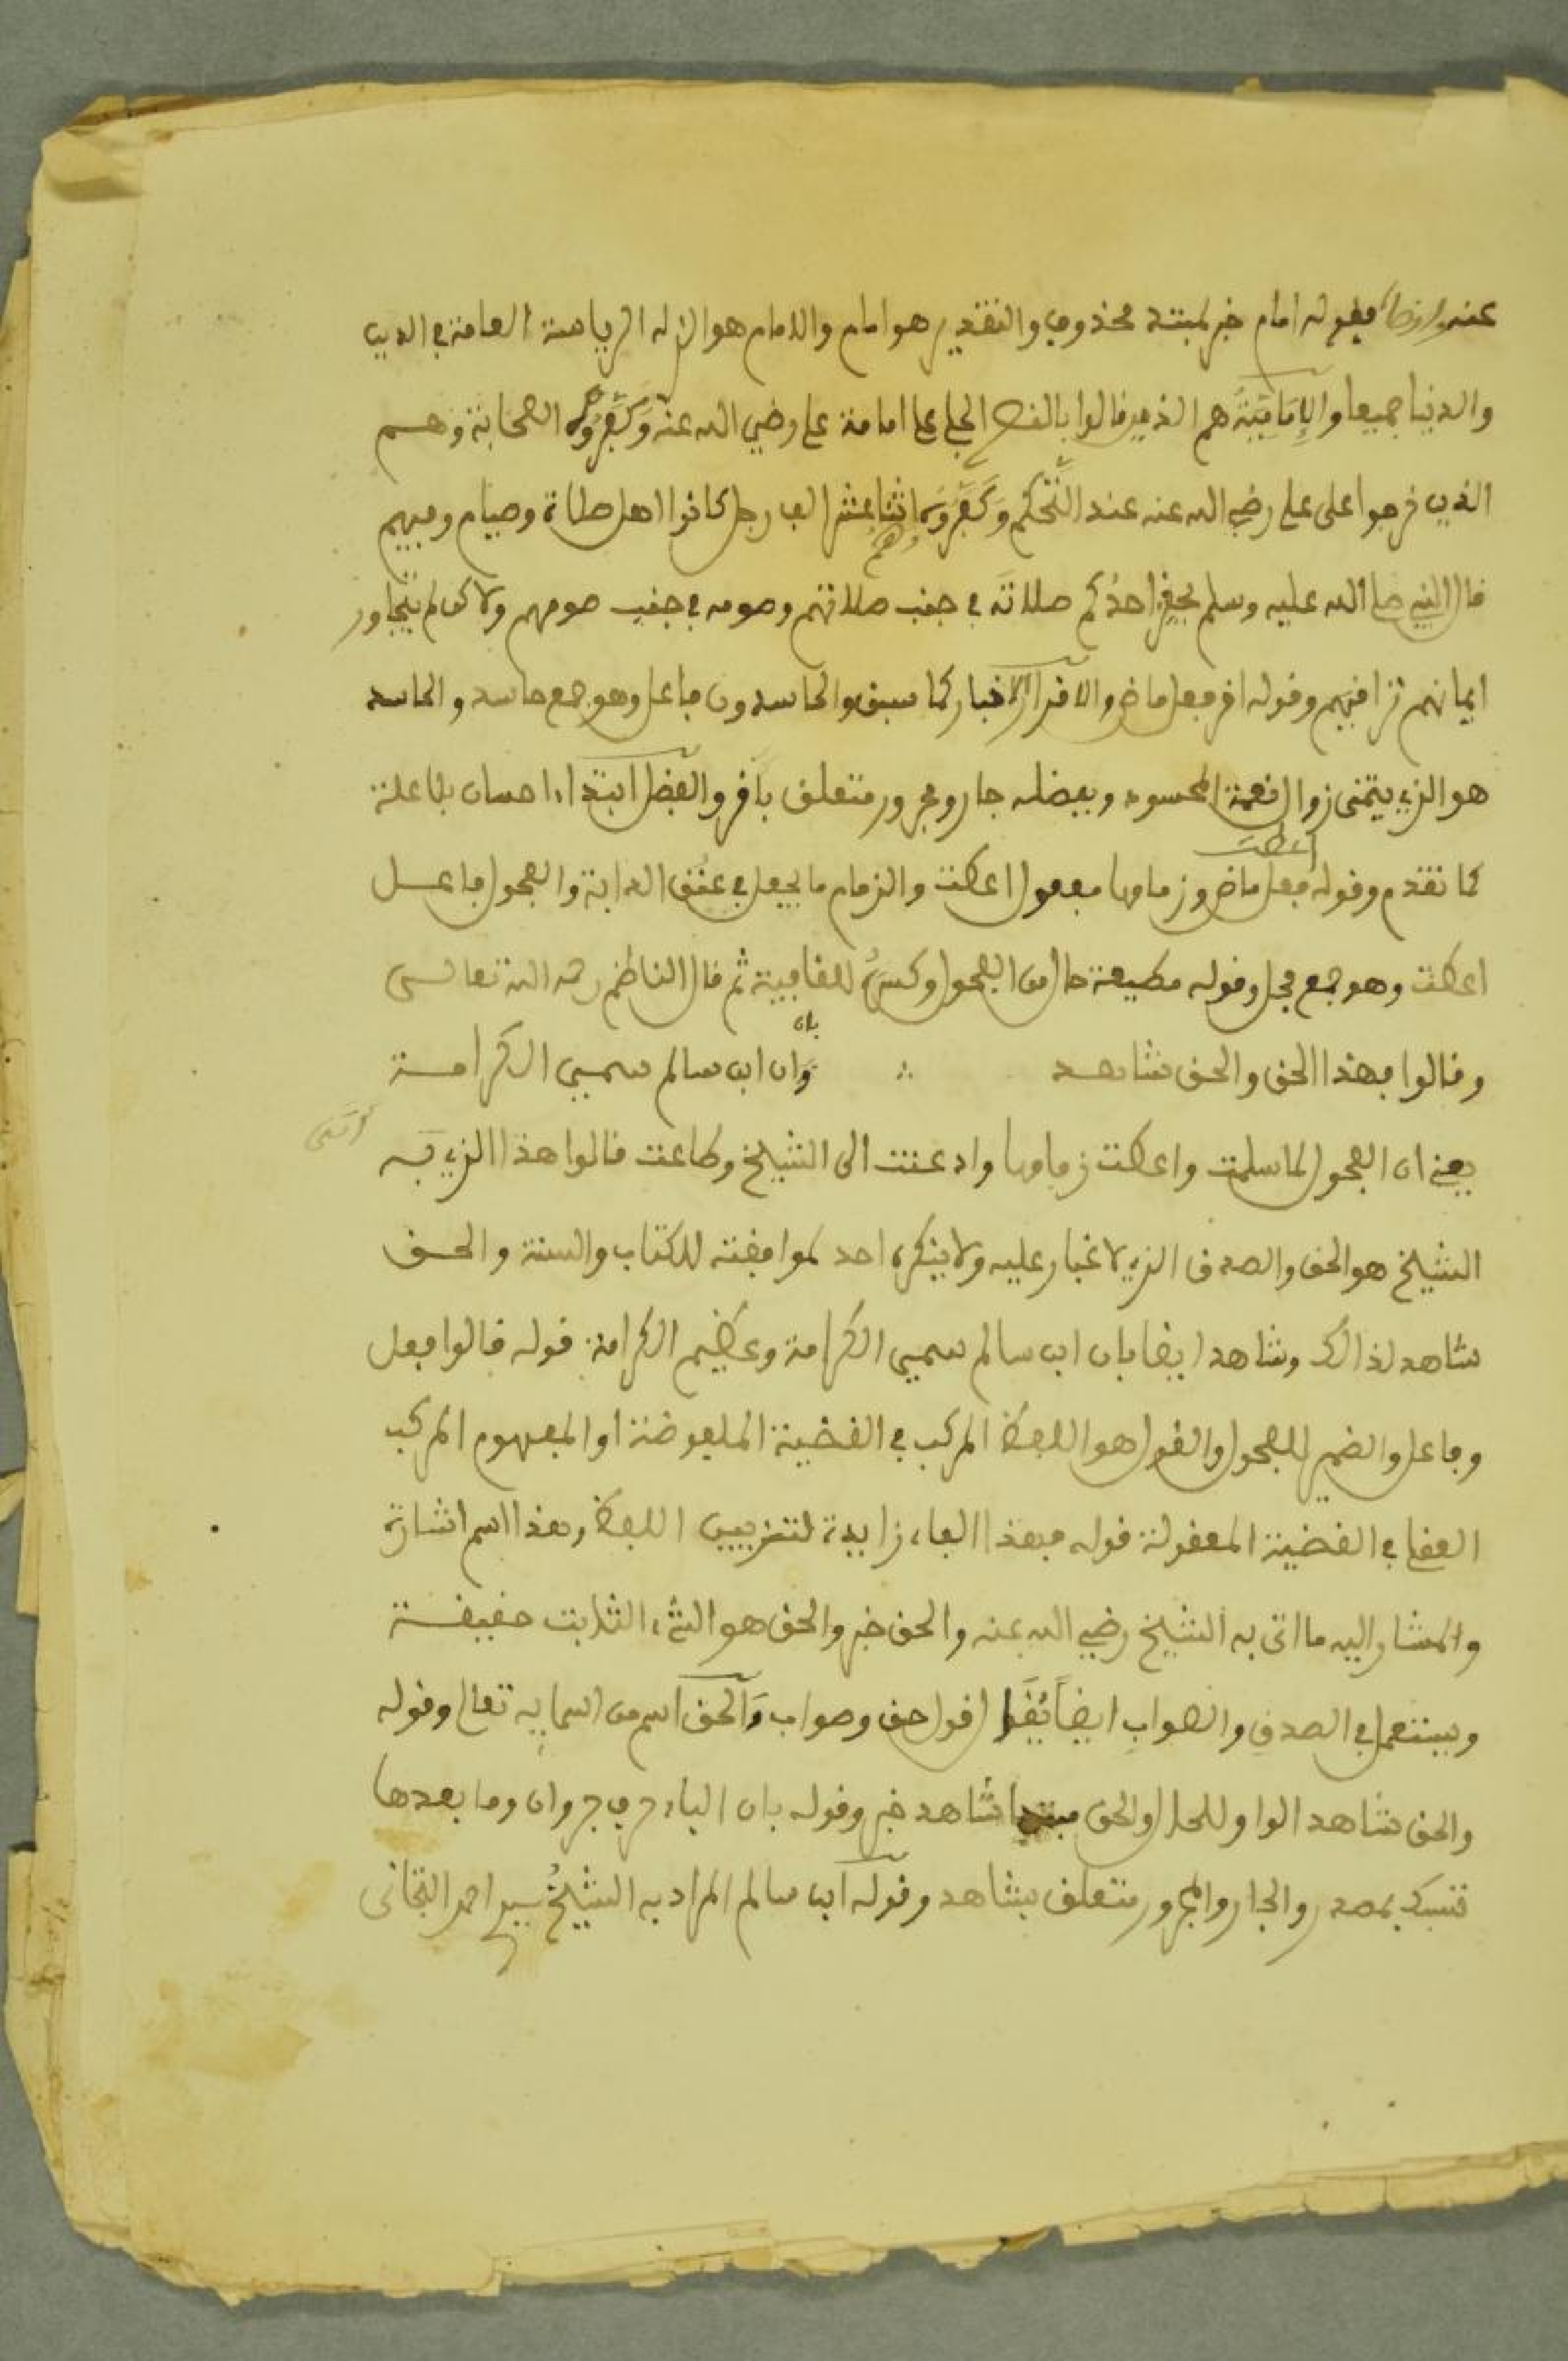 عنه وارضاه فقوله امام خبر لمبتدء محذوف والتقدير هو امام والامام هو الذي له الرياسة العامة في الدين
والدنيا جميعا والإمامية هم الذين قالوا بالنص الجلي على امامة علي رضي الله عنه وكفروا الصحابة وهم
الذين خرجوا على علي رضي الله عنه عند التحكيم وكفروه وهم اثنا عشر الف رجل كانوا اهل صلاة وصيام وفيهم
قال النبي صلى الله عليه وسلم يحقر احدكم صلاته في جنب صلاتهم وصومه في جنب صومهم ولاكن لم يتجاوز
ايمانهم تراقيهم وقوله اقر فعل ماض والاقرار الاخبار كما سبق والحاسدون فاعل وهو جمع حاسد والحاسد
هو الذي يتمنى زوال نعمة المحسود وبفضله جار ومجرور متعلق بأقر والفضل ابتداء احسان بلا علة
كما تقدم وقوله اعطت فعل ماض وزمامها مفعول اعطت والزمام ما يجعل في عنق الدابة والفحول فاعل
اعطت وهو جمع فحل وقوله مطيعة حال من الفحول وكسر للقافية ثم قال الناظم رحمه الله تعالى
وقالوا فهذا الحق والحق شاهد ∴ وان بان ابن سالم سمي الكرامة
يعني ان الفحول لما سلمت واعطت زمامها واذعنت الى الشيخ وطاعت قالوا هذا الذي به
الشيخ هو الحق والصدق الذي لا غبار عليه ولا ينكره احد لموافقته للكتاب والسنة والحق
شاهد لذالك وشاهد ايضا بان ابن سالم سمي الكرامة وعظيم الكرامة قوله قالوا فعل
وفاعل والضمير للفحول والقول هو اللفظ المركب في القضية الملفوظة او المفهوم المركب
العقلي في القضية المعقولة قوله فهذا الفاء زايدة لتزيين اللفظ وهذا اسم اشارة
والمشار اليه ما اتى به الشيخ رضي الله عنه والحق خبر والحق هو الشيء الثابت حقيقة
ويستعمل في الصدق والصواب ايضا يقال قول حق وصواب والحق اسم من اسمايه تعالى وقوله
والحق شاهد الواو للحال والحق مبتدا شاهد خبر وقوله بان الباء حرف جر وان وما بعدها
تنسبك بمصدر والجار والمجرور متعلق بشاهد وقوله ابن سالم المراد به الشيخ سيدي احمد التجاني